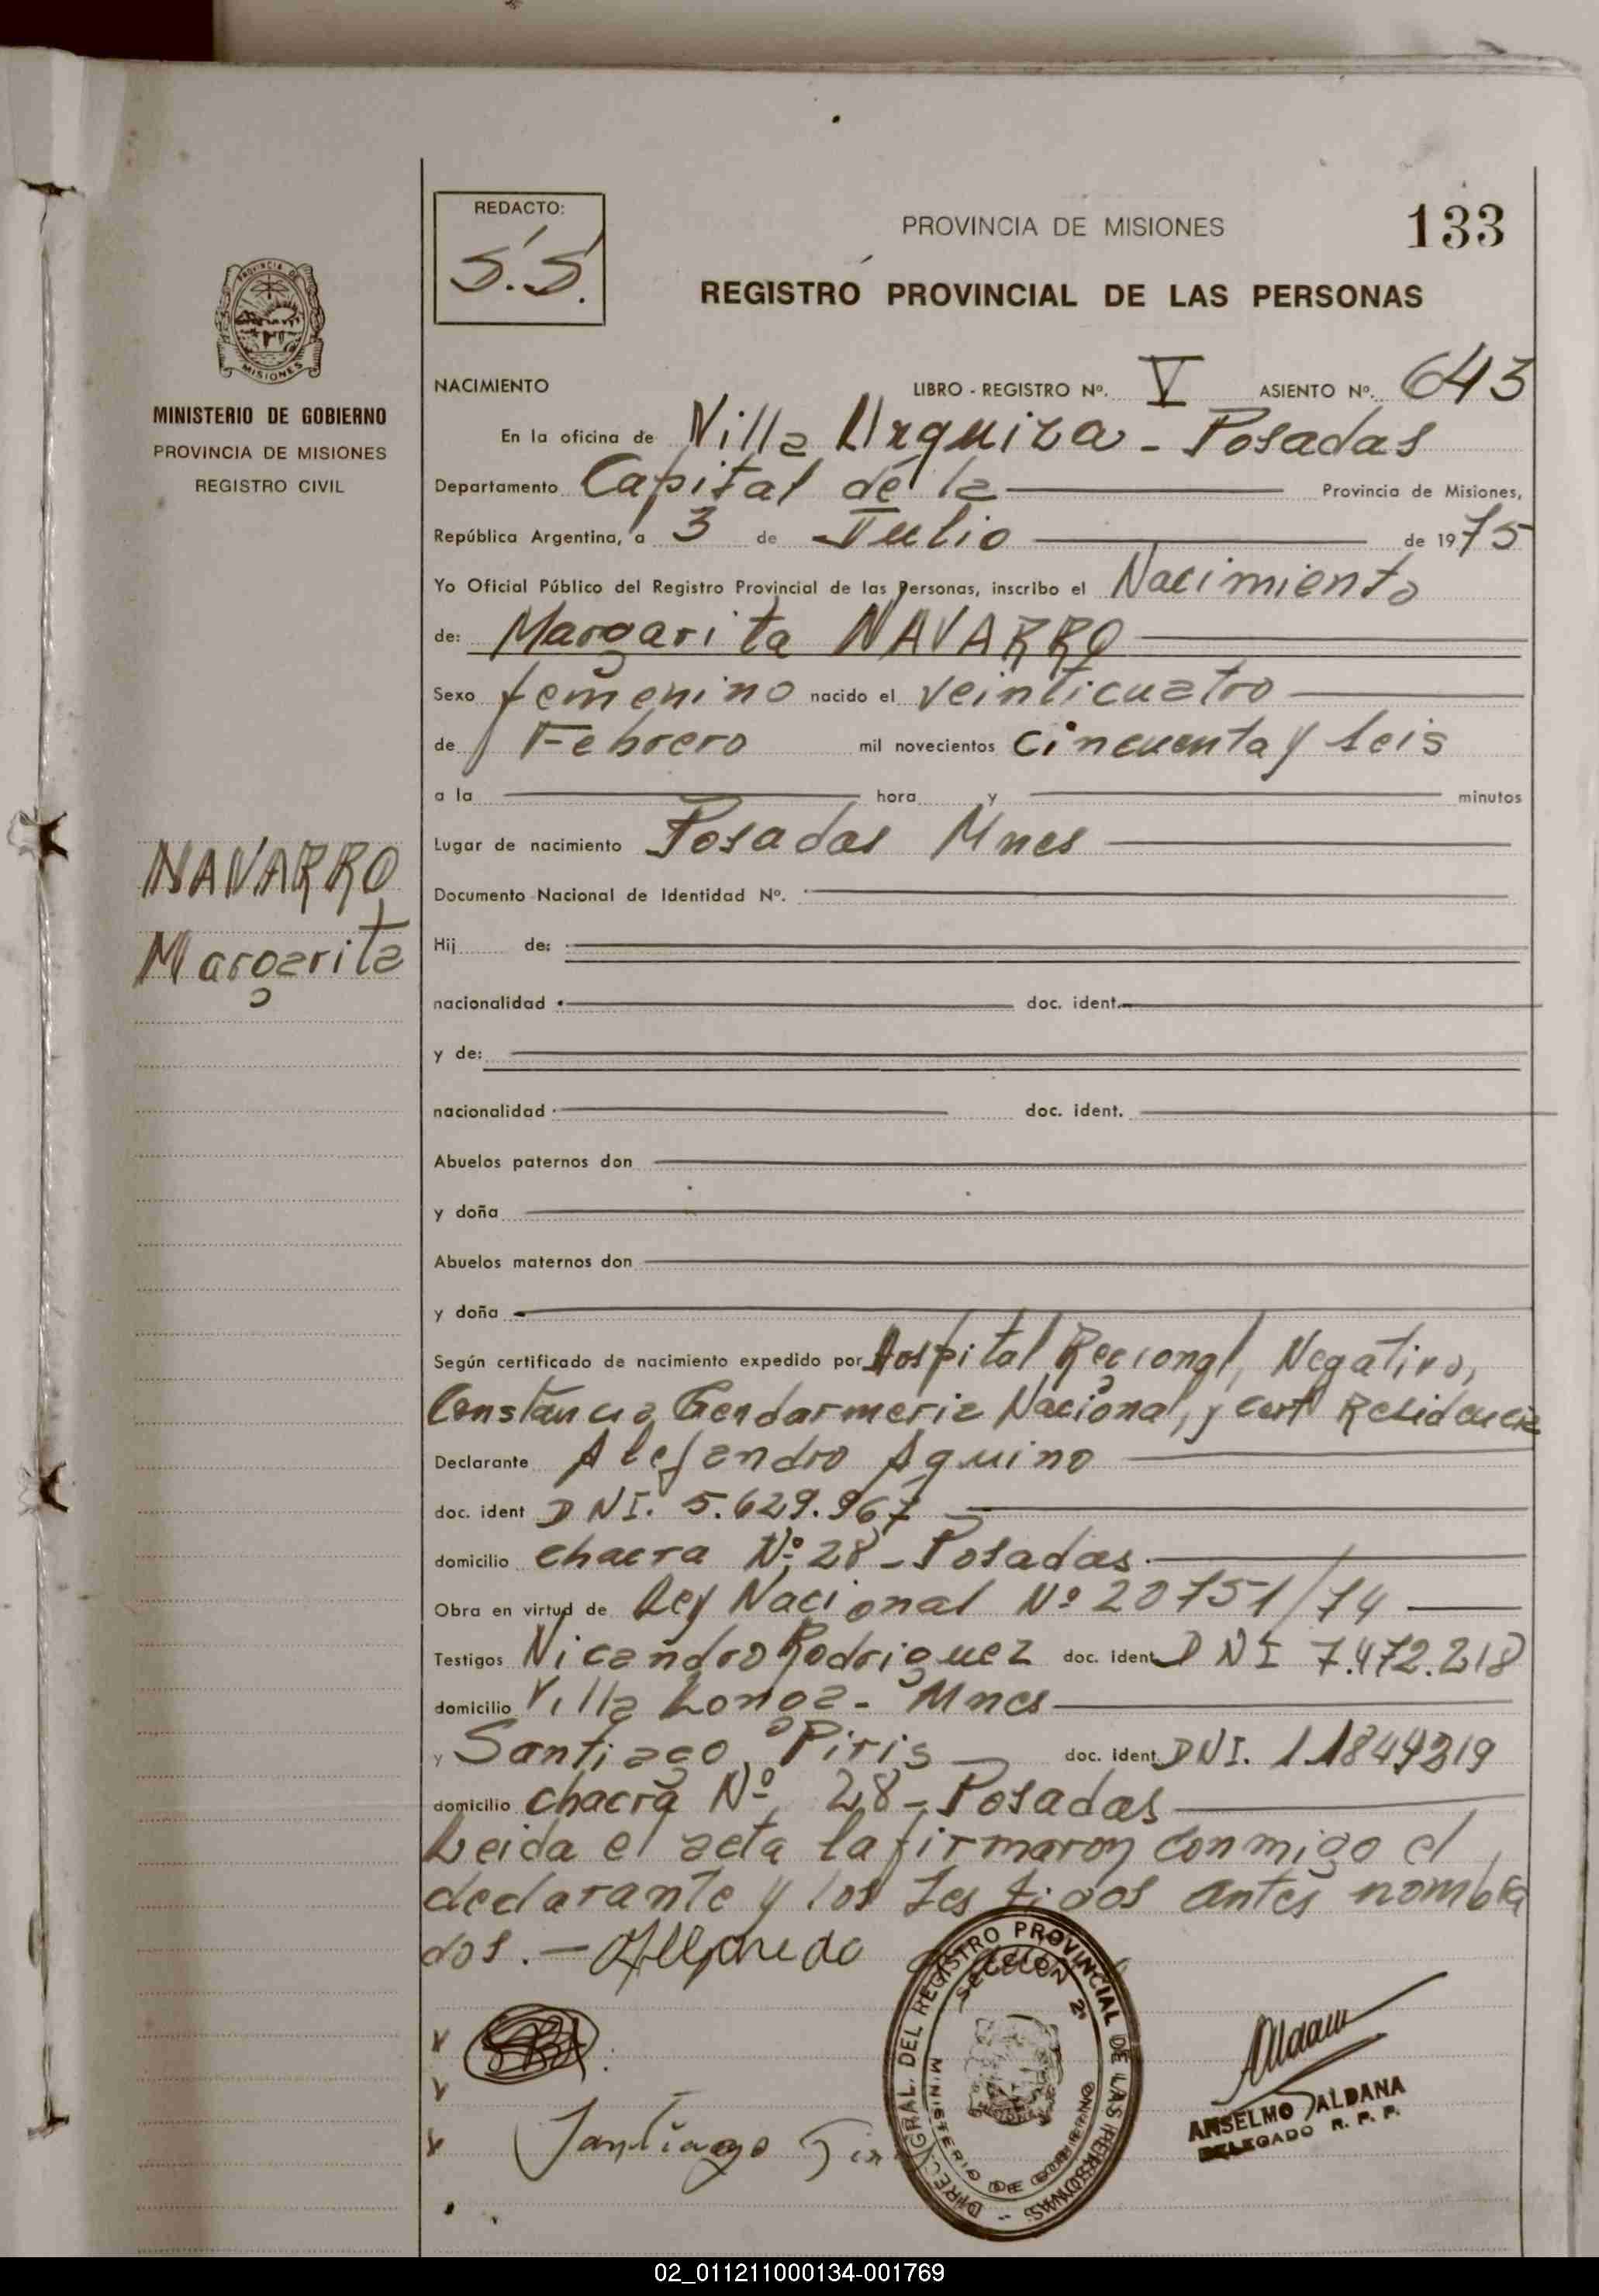 REDACTO:
S.S.
PROVINCIA DE MISIONES
133
REGISTRO PROVINCIAL DE LAS PERSONAS
PROVINCIA DE
MISIONES
MINISTERIO DE GOBIERNO
PROVINCIA DE MISIONES
REGISTRO CIVIL
NAVARRO
Margarita
NACIMIENTO LIBRO - REGISTRO Nº. V ASIENTO Nº. 643
En la oficina de Villa Urquiza - Posadas
Departamento Capital de la Provincia de Misiones,
República Argentina, a 3 de Julio de 1975
Yo Oficial Público del Registro Provincial de las Personas, inscribo el Nacimiento
de: Margarita NAVARRO
Sexo femenino nacido el veinticuatro
de Febrero mil novecientos cincuenta y seis
a la hora y minutos
Lugar de nacimiento Posadas Mnes
Documento Nacional de Identidad Nº.
Hij de:
nacionalidad doc. ident.
y de:
nacionalidad doc. ident.
Abuelos paternos don
y doña
Abuelos maternos don
y doña
Según certificado de nacimiento expedido por Hospital Regional, Negativo,
Constancia Gendarmeria Nacional, y cert Residencia
Declarante Alejandro Aquino
doc. ident DNI. 5.629.967
domicilio chacra Nº 28 - Posadas
Obra en virtud de Ley Nacional Nº 20751/74
Testigos Nicandro Rodriguez doc. ident DNI 7.472.218
domicilio Villa Longa - Mnes
y Santiago Piris doc. ident. DNI. 11849219
domicilio chacra Nº 28 - Posadas
Leida el acta la firmaron conmigo el
declarante y los testigos antes nombra
dos. -
DIREC. GRAL. DEL REGISTRO PROVINCIAL DE LAS PERSONAS -
SECCION 2ª
MINISTERIO DE GOBIERNO
Santiago
ANSELMO ALDANA
DELEGADO R. P. P.
02_011211000134-001769